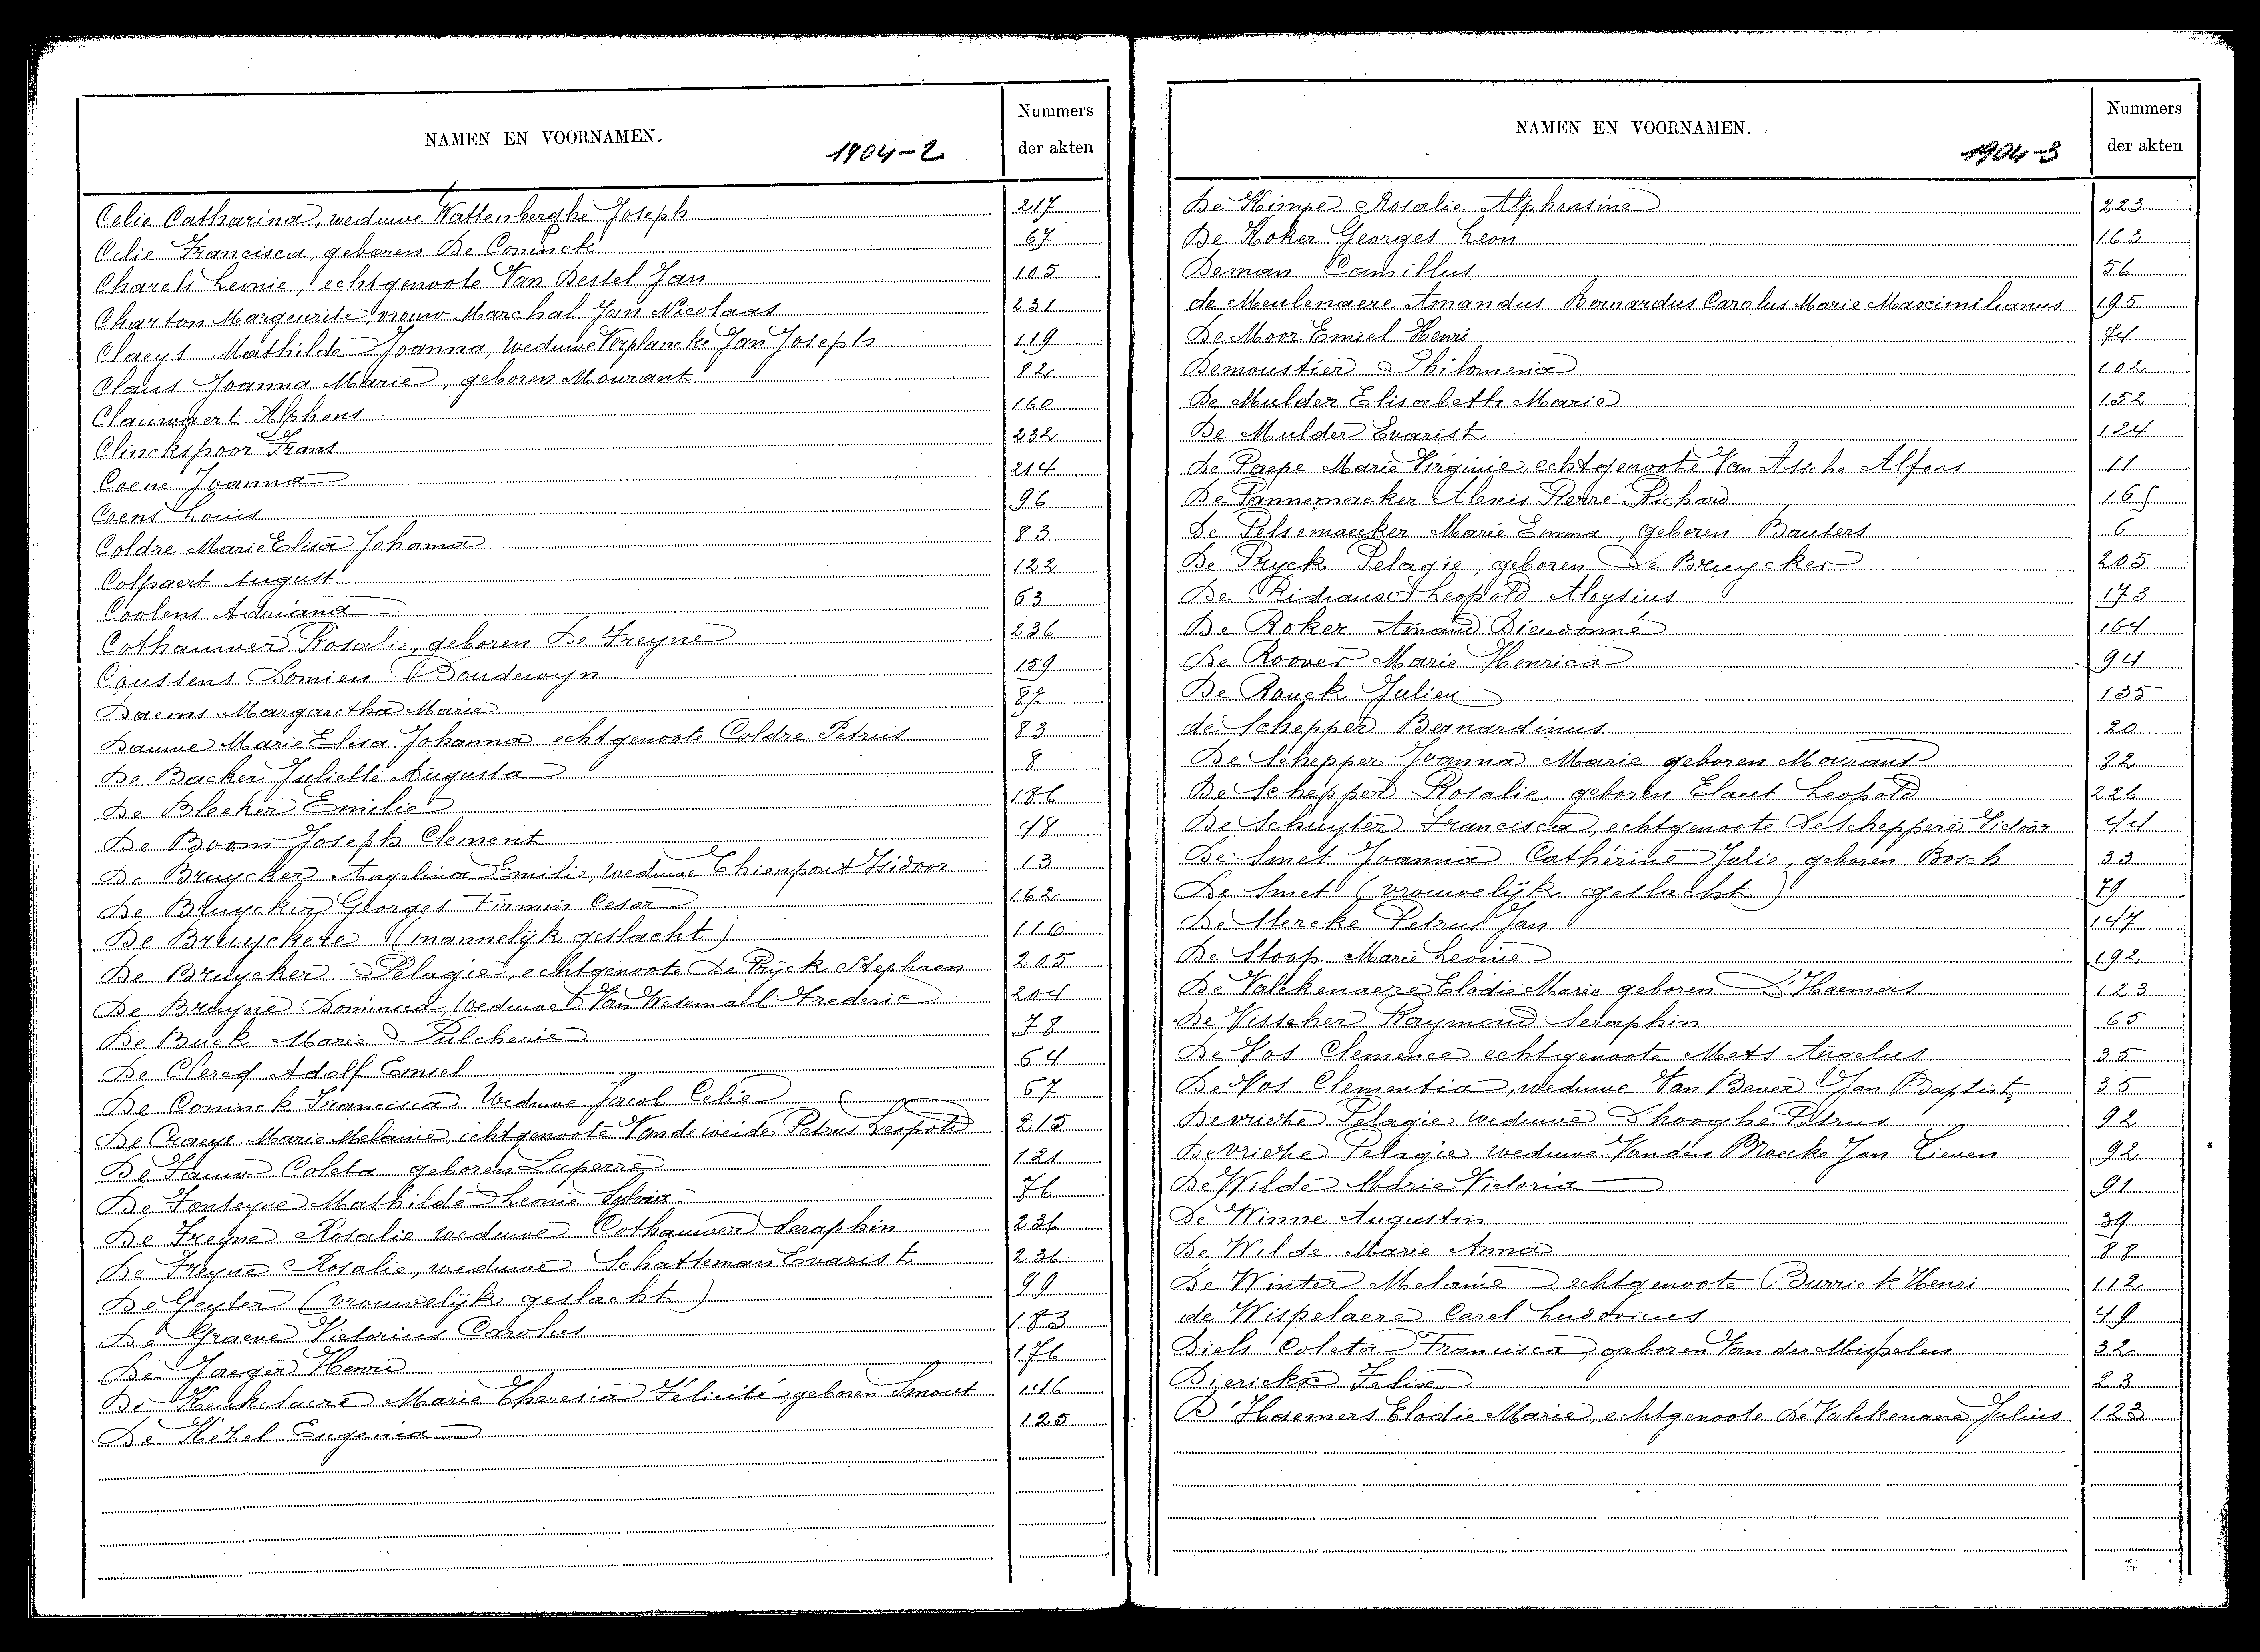 NAMEN EN VOORNAMEN.
1904-2
Nummers
der akten
Celie Catharina, weduwe Wattenberghe Joseph 217
Celie Francisca, geboren De Coninck 67
Charels Leonie, echtgenoote Van Bessel Jan 105
Charton Margeurite, vrouw Marchal Jean Nicolaas 231
Claeys Mathilde Joanna, weduwe Verplancke Jan Joseph 119
Claus Joanna Marie, geboren Mourant 82
Clauwaert Alphons 160
Clinckspoor Frans 232
Coene Joanna 214
Coens Louis 96
Coldre Marie Elisa Johanna 83
Colpaert August 122
Coolens Adriana 63
Cothauwer Rosalie, geboren De Freyne 236
Coussens Domien Boudewyn 159
Daems Margaretha Marie 87
Dauwe Marie Elisa Johanna echtgenoote Coldre Petrus 83
De Backer Juliette Augusta 8
De Bleeker Emelie 186
De Boom Joseph Clement 48
De Bruycker Angelina Emilie, weduwe Chienpont Isidoor 13
De Bruycker Georges Firmin Cesar 162
De Bruyckere (mannelijk geslacht) 116
De Bruycker Pelagie, echtgenoote De Pryck Stephaan 205
De Bruyne Dominica, weduwe Van Wesemael Frederic 204
De Buck Marie Pulcherie 78
De Clercq Adolf Emiel 64
De Coninck Francisca Weduwe Jacob Celie 67
De Craeye Marie Melanie, echtgenoote Vandeweide Petrus Leopold 215
De Fauw Coleta geboren Laperre 121
De Fonteyne Mathilde Leonie Sylvia 76
De Freyne Rosalie weduwe Cothauwer Seraphin 236
De Freyne Rosalie, weduwe Schatteman Evarist 236
De Geyter (vrouwelijk geslacht) 99
De Graeve Victorius Carolus 183
De Jaeger Henri 176
De Keukelaere Marie Theresia Félicité, geboren Smout 146
De Kezel Eugenia 125
NAMEN EN VOORNAMEN.
1904-3
Nummers
der akten
De Kimpe Rosalie Alphonsine 223
De Koker Georges Leon 163
Deman Camillus 56
de Meulenaere Amandus Bernardus Carolus Marie Maximilianus 195
De Moor Emiel Henri 74
Demoustier Philomena 102
De Mulder Elisabeth Marie 152
De Mulder Evarist 124
De Paepe Marie Virginie, echtgenoote Van Assche Alfons 11
De Pannemaeker Alexis Pierre Richard 165
De Pelsemaecker Marie Emma, geboren Bauters 6
De Pryck Pelagie, geboren De Bruycker 205
De Leopold Aloysius 173
De Roker Amand Dieudonné 164
De Roover Marie Henrica 94
De Rouck Julien 135
de Schepper Bernardinus 20
De Schepper Joanna Marie geboren Mourant 82
De Schepper Rosalie geboren Elaut Leopold 226
De Schuyter Francisca, echtgenoote De Scheppere Victoor 44
De Smet Joanna Cathérine Julie, geboren Bosch 33
De Smet (vrouwelijk geslacht) 79
De Stercke Petrus Jan 147
De Stoop Marie Leonie 192
De Valckenaere Elodie Marie geboren D'Haemers 123
De Visscher Raymond Seraphin 65
De Vos Clemence echtgenoote Mets Angelus 35
De Vos Clementia, weduwe Van Bever Jan Baptist 35
Devrieze Pelagie weduwe D'hooghe Petrus 92
Devrieze Pelagie weduwe Vanden Broecke Jan Lieven 92
De Wilde Marie Victoria 91
De Winne Augustin 39
De Wilde Marie Anna 88
De Winter Melanie echtgenoote Burrick Henri 112
de Wispelaere Carel Ludovicus 49
Diels Coleta Francisca, geboren Van der Mispelen 32
Dierickx Felix 23
D'Haemers Elodie Marie, echtgenoote De Valckenaere Julius 123